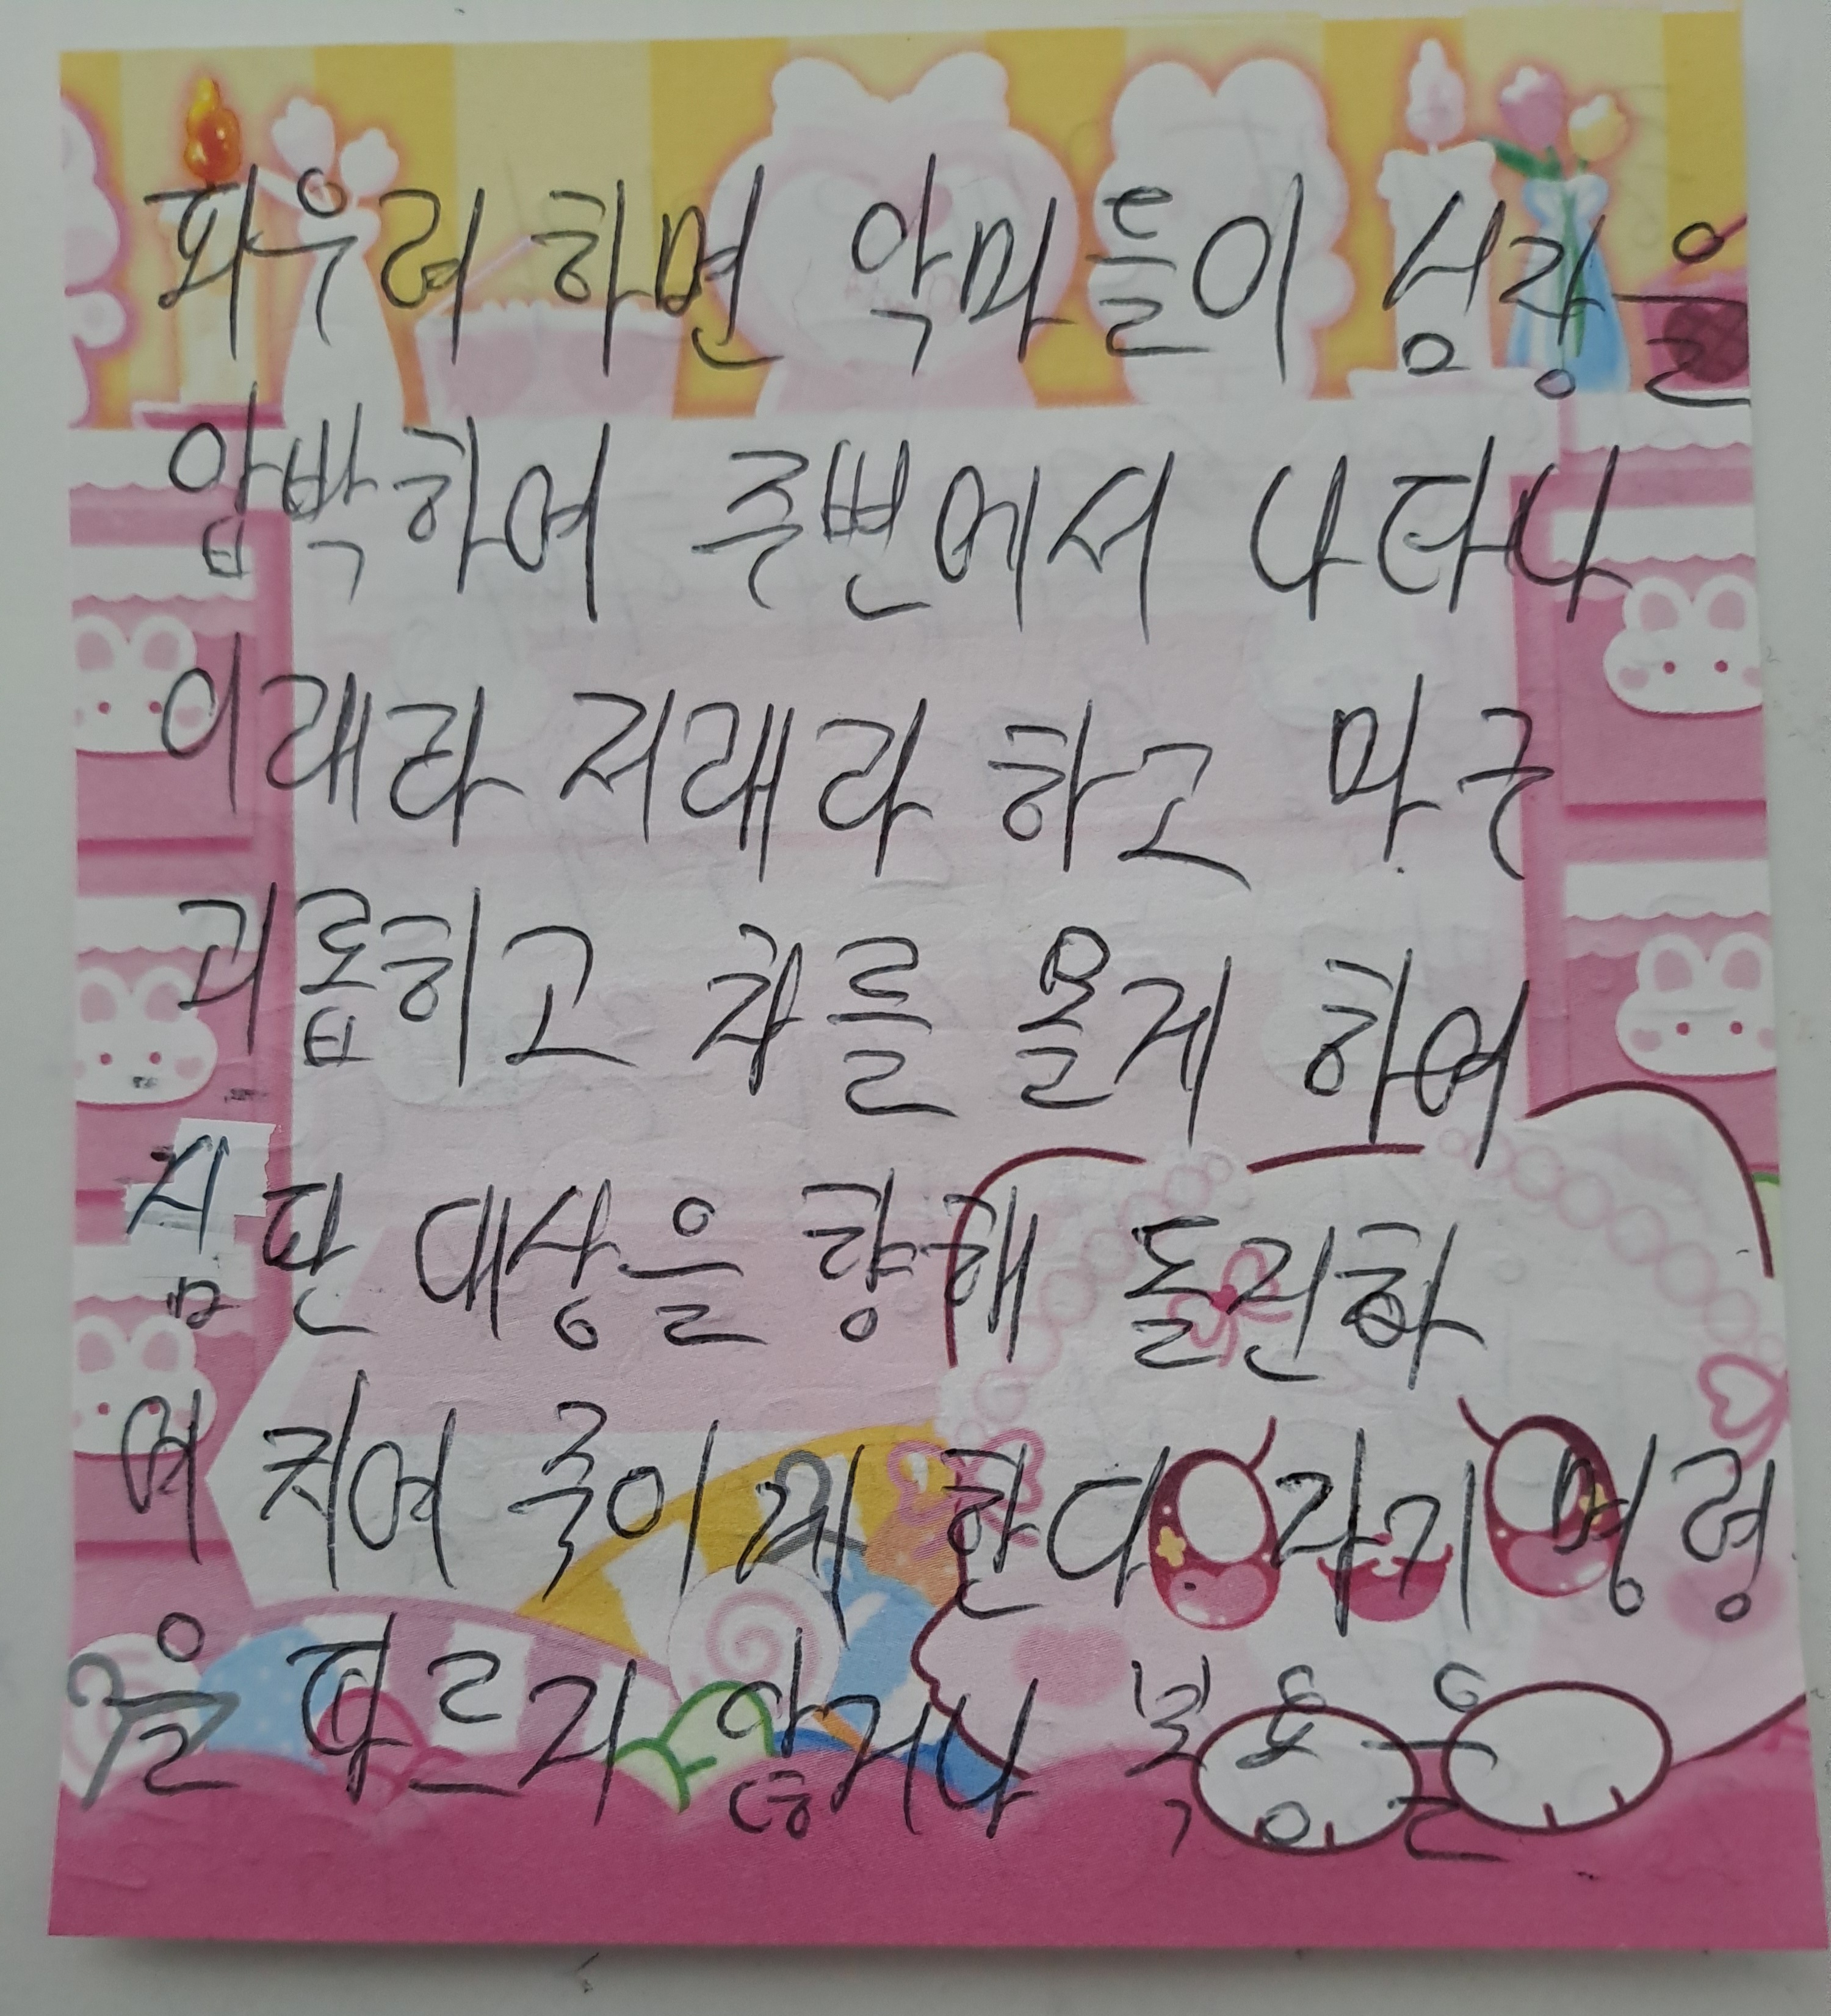 피우려 하면 악마들이 심장을
압박하여 주변에서 나타나
이래라 저래라 하고 마구
괴롭히고 차를 몰게 하여
심판 대상을 향해 돌진하
여 치여 죽이게 한다 자기 명령
을 따르지 않거나 복용을